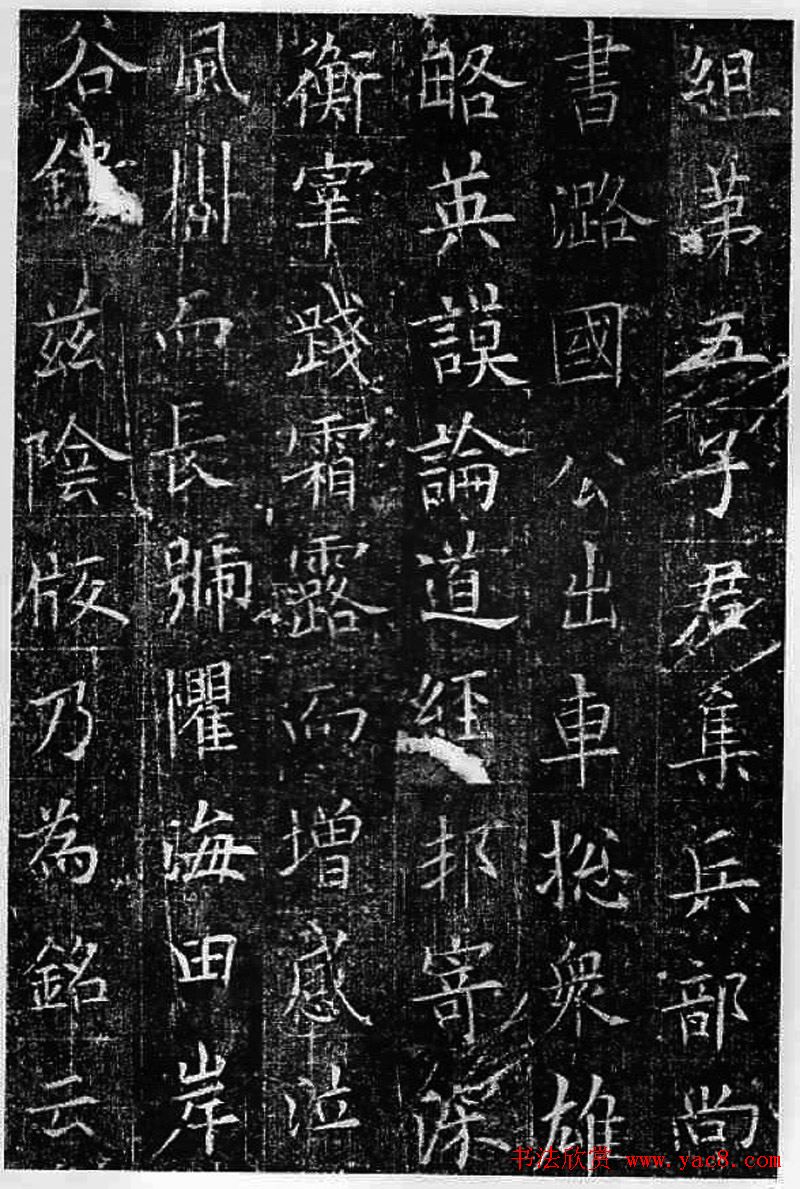 组第五子君集兵部尚
書潞國公出車㧾衆雄
略英謨論道經邦寄深
衡宰踐霜露而增感泣
風樹而長號懼海田岸
谷鐫兹陰版乃為銘云
书法欣赏 www.yac8.com